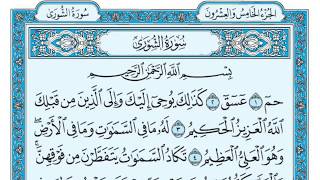 الجزء الخامس والعشرون
سورة الشورى
سُورَةُ الشُّورَىٰ
بِسْمِ اللَّهِ الرَّحْمَٰنِ الرَّحِيمِ
حمٓ ١ عٓسٓقٓ ٢ كَذَٰلِكَ يُوحِىٓ إِلَيْكَ وَإِلَى ٱلَّذِينَ مِن قَبْلِكَ
ٱللَّهُ ٱلْعَزِيزُ ٱلْحَكِيمُ ٣ لَهُۥ مَا فِى ٱلسَّمَٰوَٰتِ وَمَا فِى ٱلْأَرْضِ
وَهُوَ ٱلْعَلِىُّ ٱلْعَظِيمُ ٤ تَكَادُ ٱلسَّمَٰوَٰتُ يَتَفَطَّرْنَ مِن فَوْقِهِنَّ